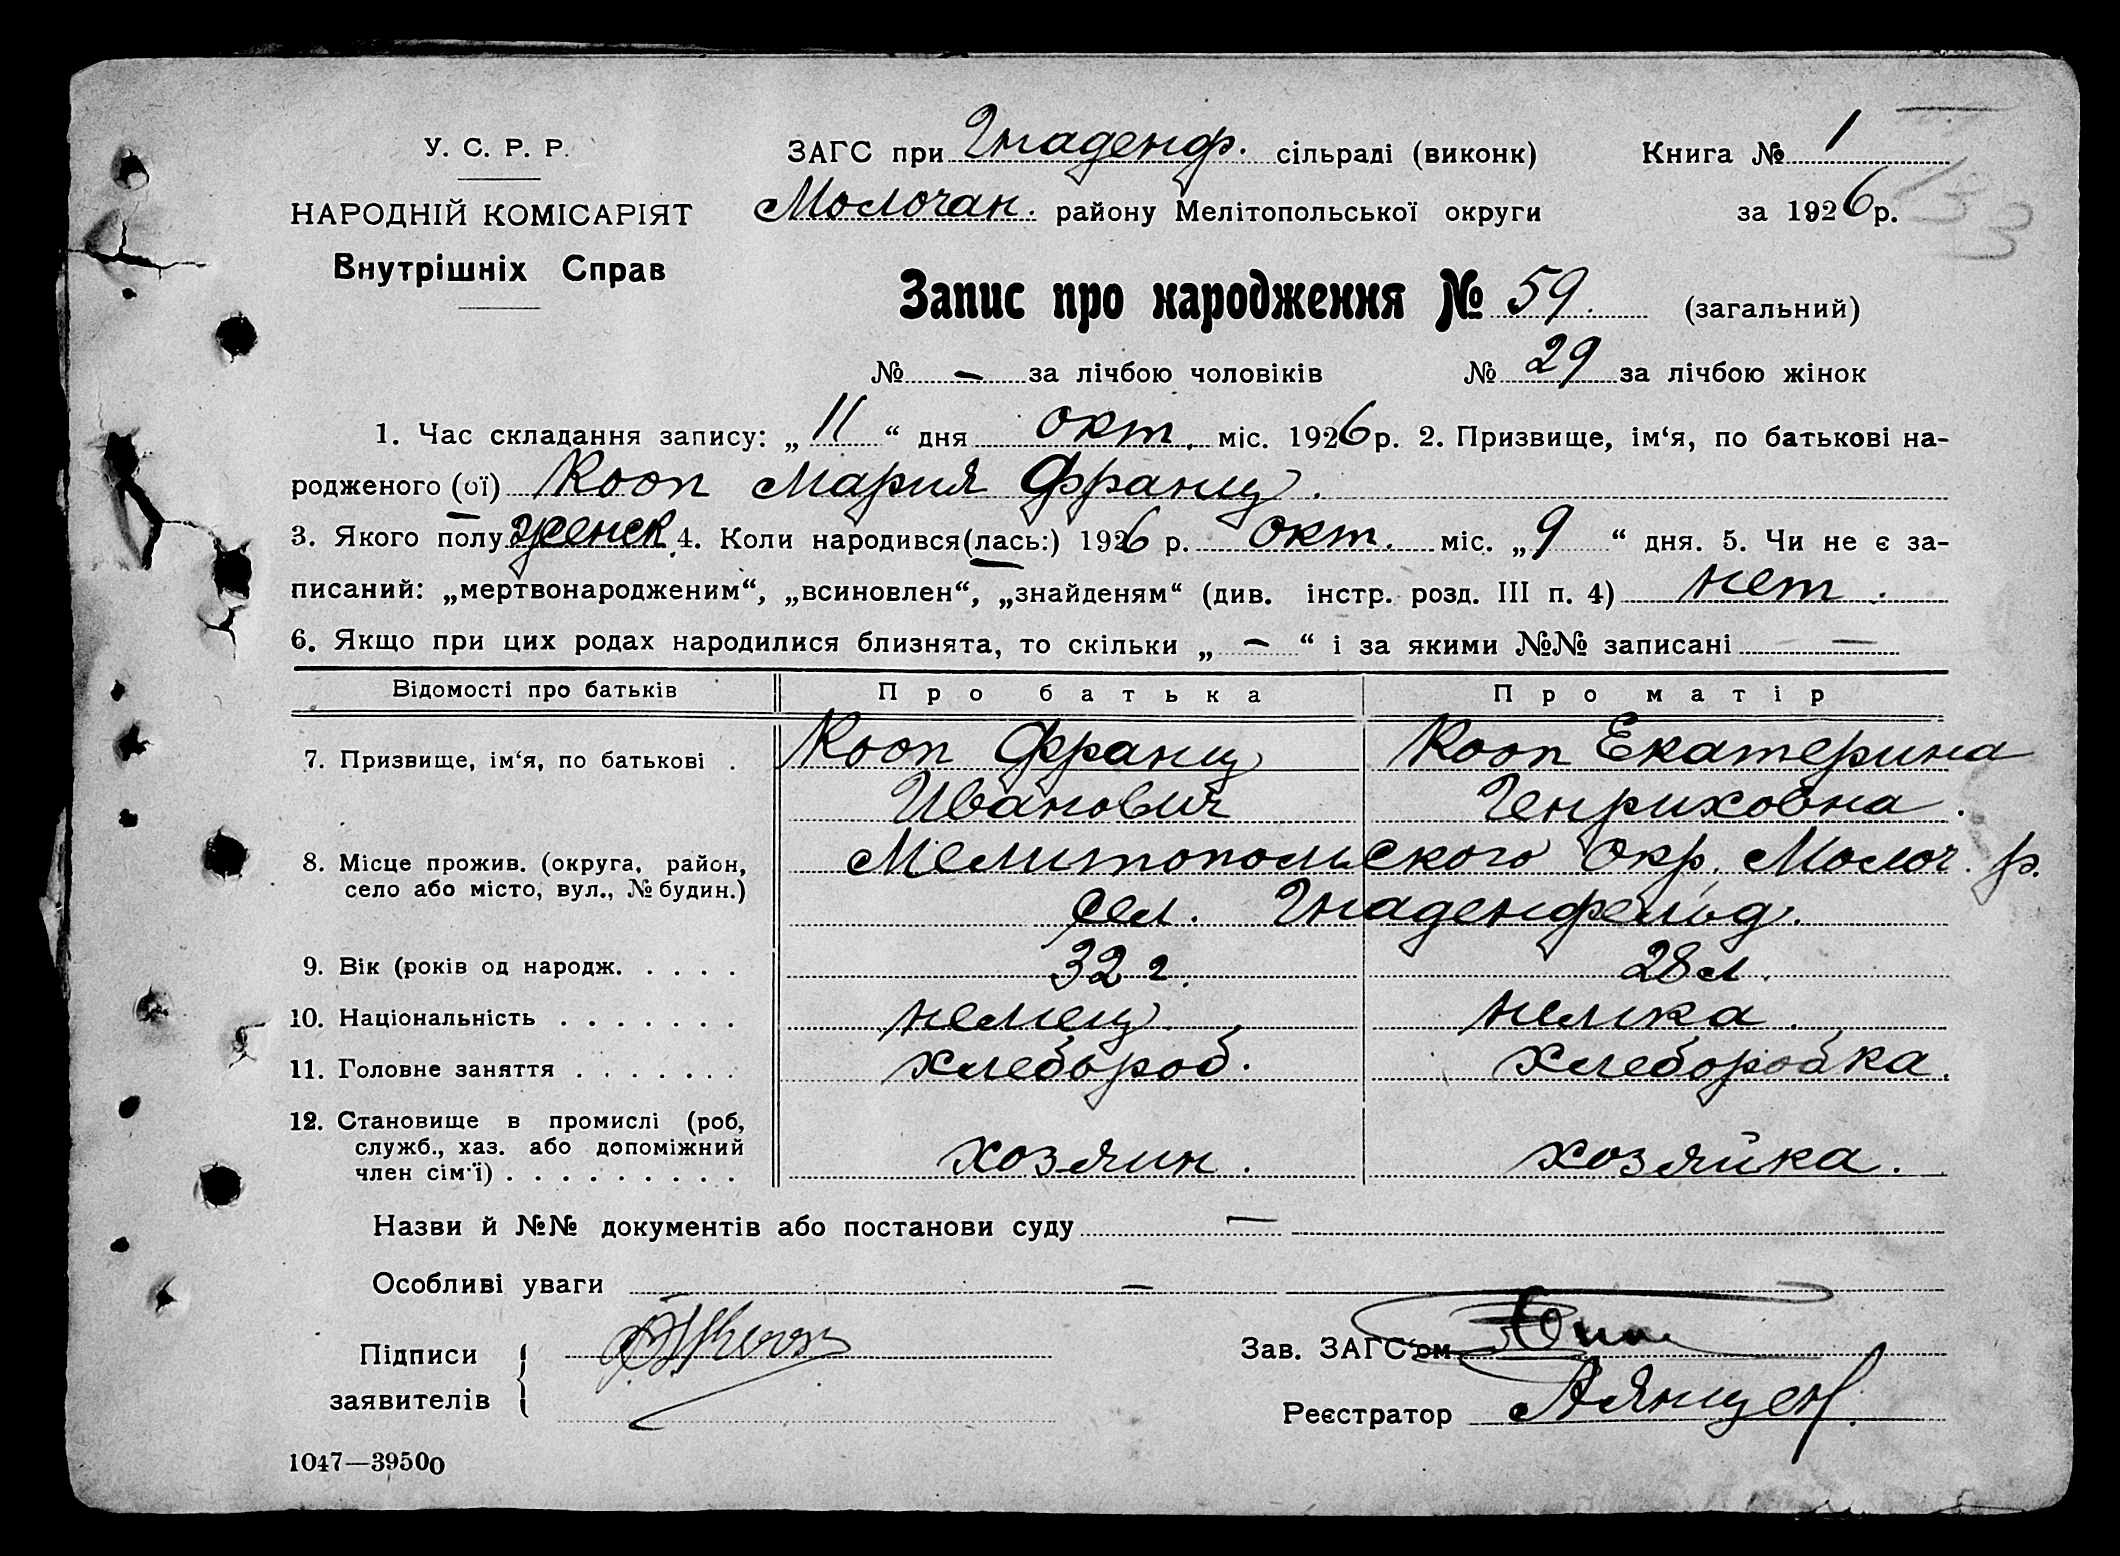 У. С. Р. Р.
НАРОДНІЙ КОМІСАРІЯТ
Внутрішніх Справ
ЗАГС при Гнаденф. сільраді (виконк) Книга № 1
Молочан. району Мелітопольської округи за 1926 р.
133
Запис про народження № 59. (загальний)
№ – за лічбою чоловіків № 29 за лічбою жінок
1. Час складання запису: „11“ дня окт. міс. 1926 р. 2. Призвище, ім‘я, по батькові на-
родженого (ої) Кооп Мария Франц.
3. Якого полу женск. 4. Коли народився(лась:) 1926 р. окт. міс. „9“ дня. 5. Чи не є за-
писаний: „мертвонародженим“, „всиновлен“, „знайденям“ (див. інстр. розд. III п. 4) нет.
6. Якщо при цих родах народилися близнята, то скільки „–“ і за якими №№ записані —
Відомості про батьків Про батька Про матір
7. Призвище, ім‘я, по батькові . Кооп Франц Кооп Екатерина
Иванович Генриховна.
8. Місце прожив. (округа, район, село або місто, вул., № будин.) Мелитопольского Окр. Молоч. р.
сел. Гнаденфельд.
9. Вік (років од народж. . . . . 32 г. 28 л.
10. Національність . . . . . . . немец немка.
11. Головне заняття . . . . . . . хлебороб. хлеборобка.
12. Становище в промислі (роб,
служб., хаз. або допоміжний
член сім‘ї) . . . . . . . . . хозяин. хозяйка.
Назви й №№ документів або постанови суду —
Особливі уваги –
Підписи
заявителів
Зав. ЗАГС‘ом
Реєстратор АЯнцен.
1047—39500